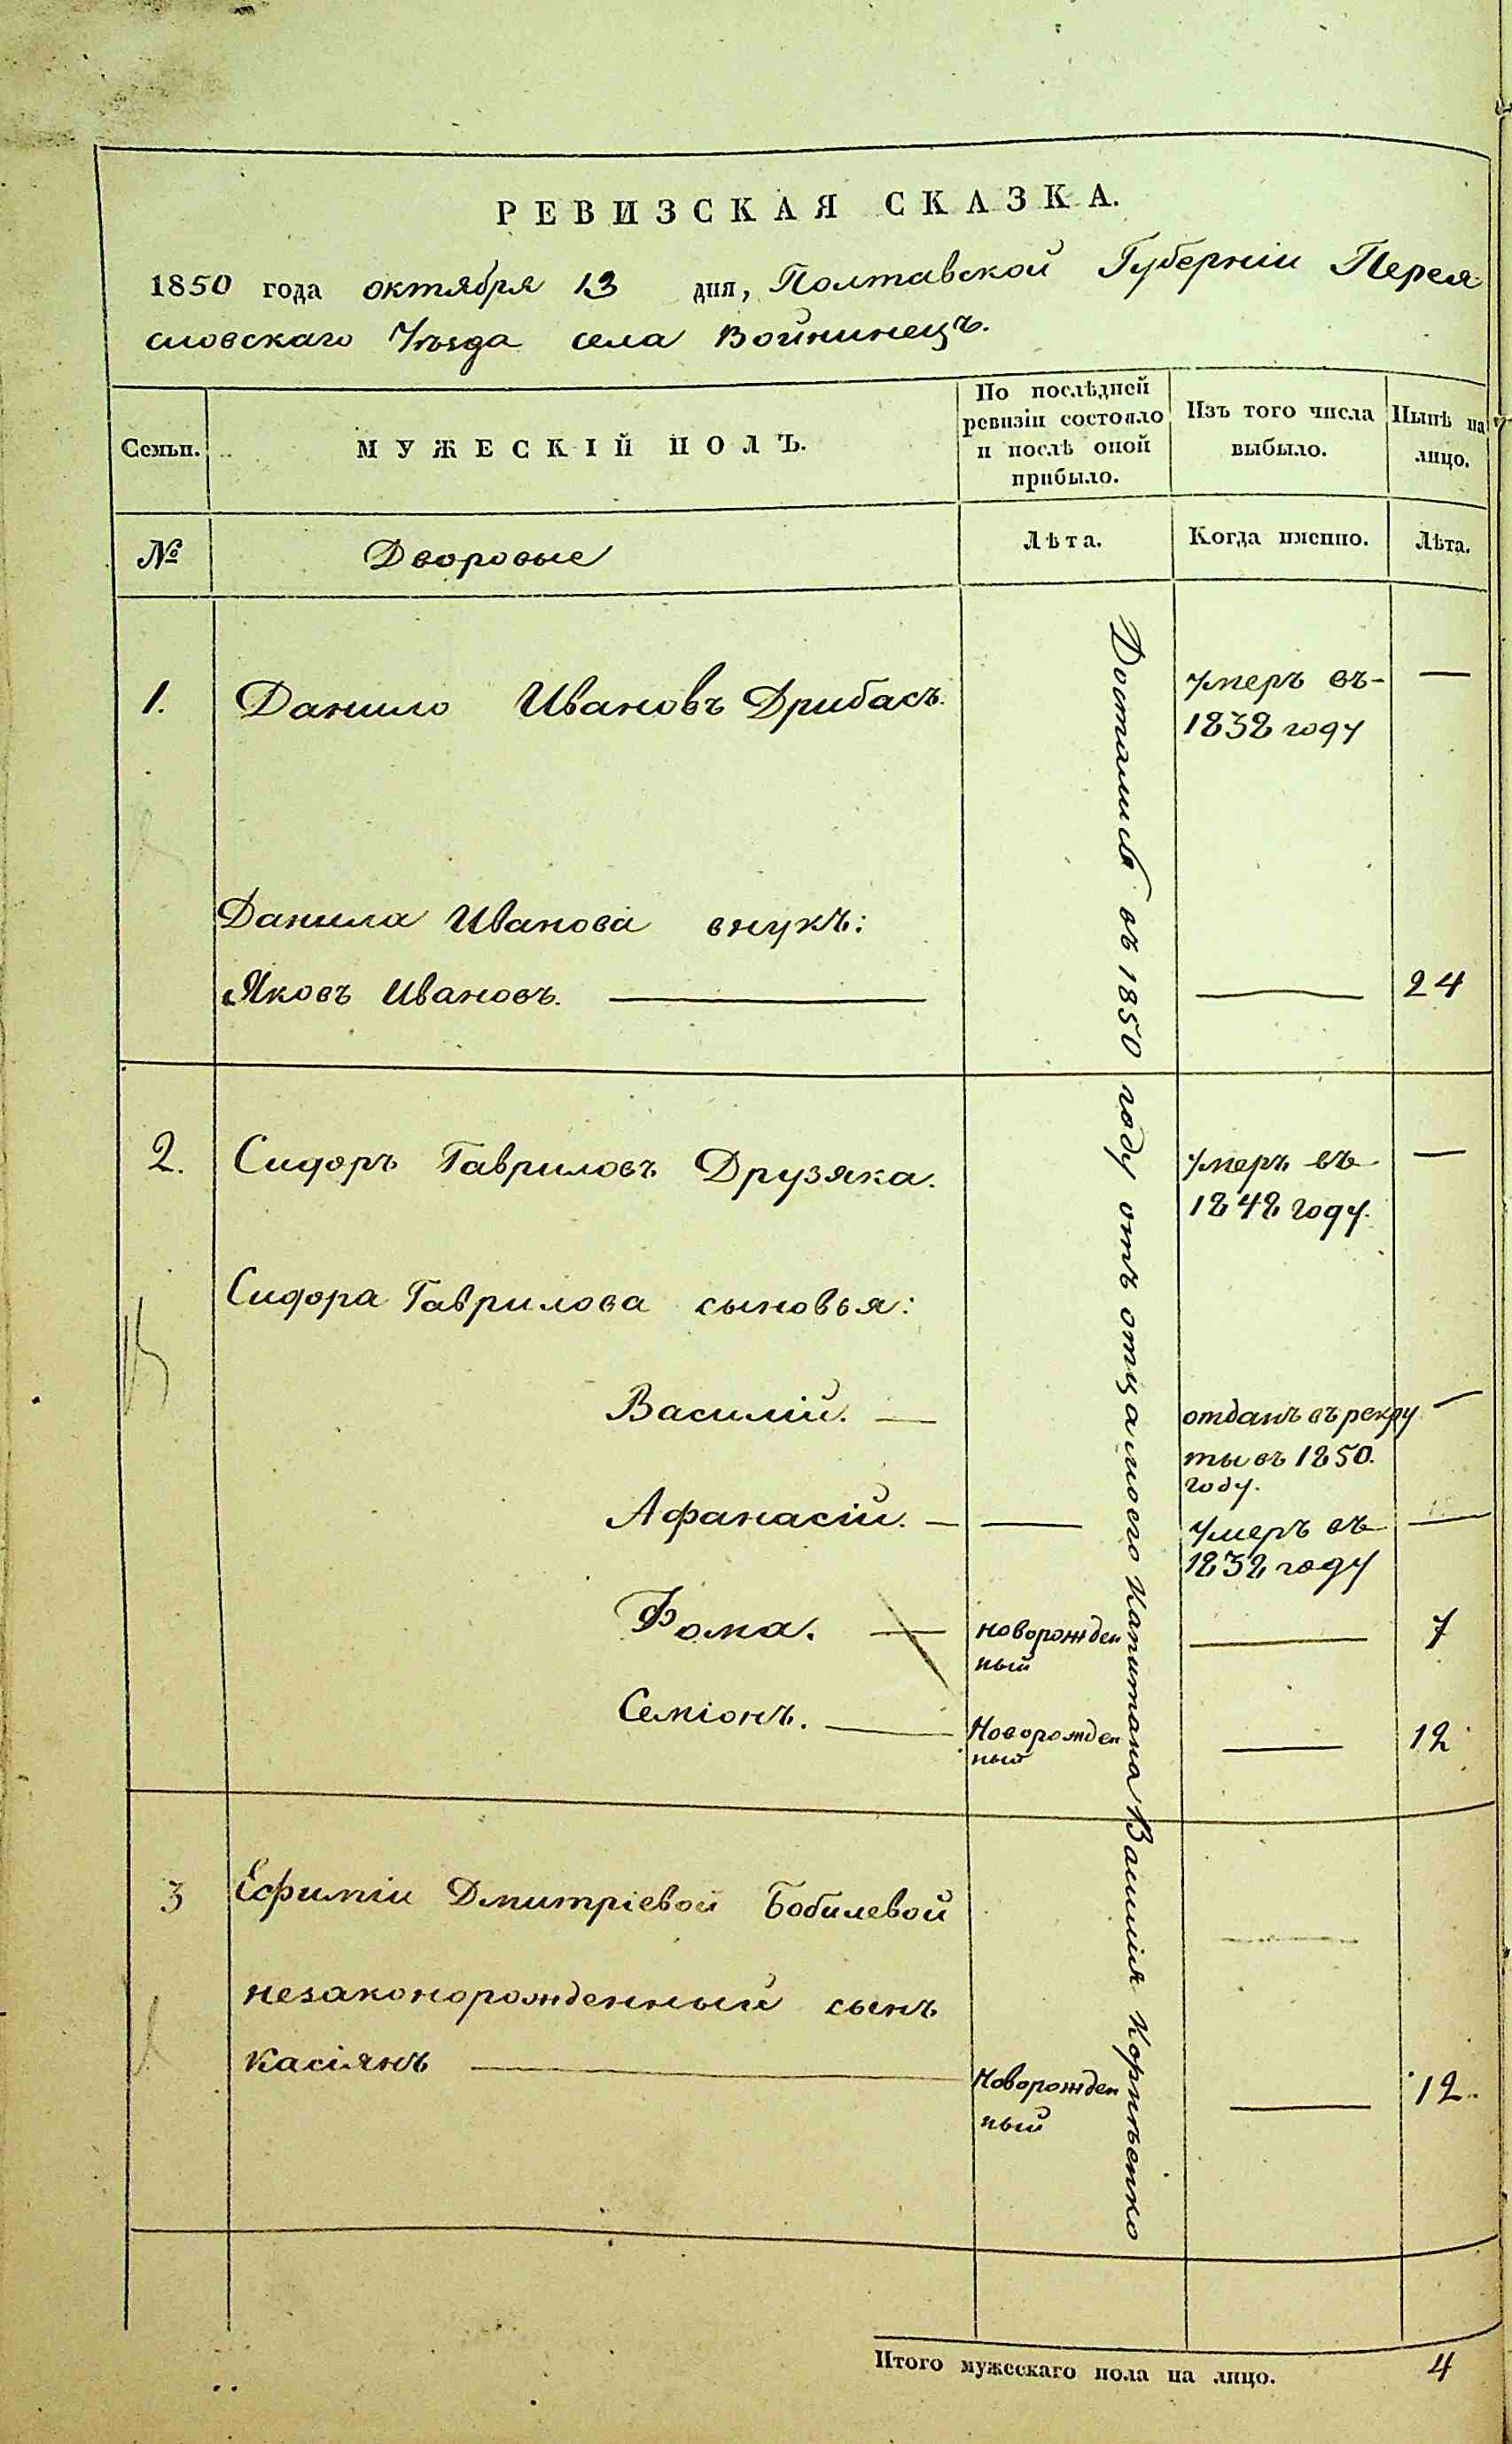 РЕВИЗСКАЯ СКАЗКА.
1850 года октября 13 дня, Полтавской Губерніи Перея
словскаго Уѣзда села Войнинецъ.
Семьи.
МУЖЕСКІЙ ПОЛЪ.
По послѣдней
ревизіи состояло
и послѣ оной
прибыло.
Изъ того числа
выбыло.
Нынѣ на
лицо.
№
Дворовые
Лѣта.
Когда имянно.
Лѣта.
1.
Данило Ивановъ Дрибасъ.
умеръ въ-
1838 году
—
Данила Иванова внукъ:
Яковъ Ивановъ. —
—
24
2.
Сидоръ Гавриловъ Друзяка.
умеръ въ
1848 году.
—
Сидора Гаврилова сыновья:
Василій. —
отданъ въ рекру
ты въ 1850.
году.
—
Афанасій. —
—
умеръ въ
1838 году
—
Фома. —
новорожден
ный
—
7
Семіонъ. —
Новорожден
ный
—
12
3
Ефиміи Дмитріевой Бобилевой
незаконорожденный сынъ
Касіянъ —
Новорожден
ный
—
12.
Достались въ 1850 году отъ отца моего Капитана Василія Корнѣенко
Итого мужескаго пола на лицо.
4